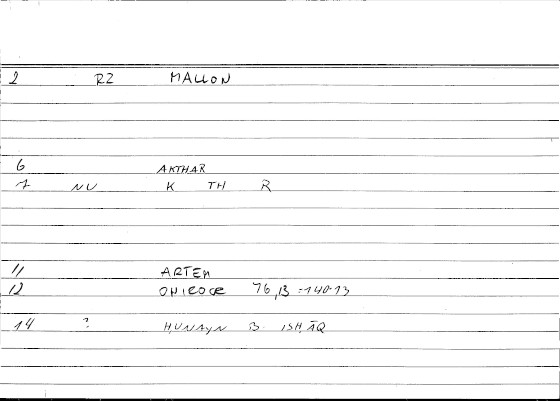 2 RZ MALLON
6 AKTHAR
7 NU K TH R
11 ARTEM
12 76,13 =140.13
14 ? ḤUNAYN B. ISḤĀQ